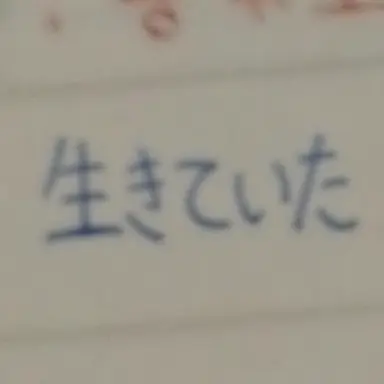 生きていた